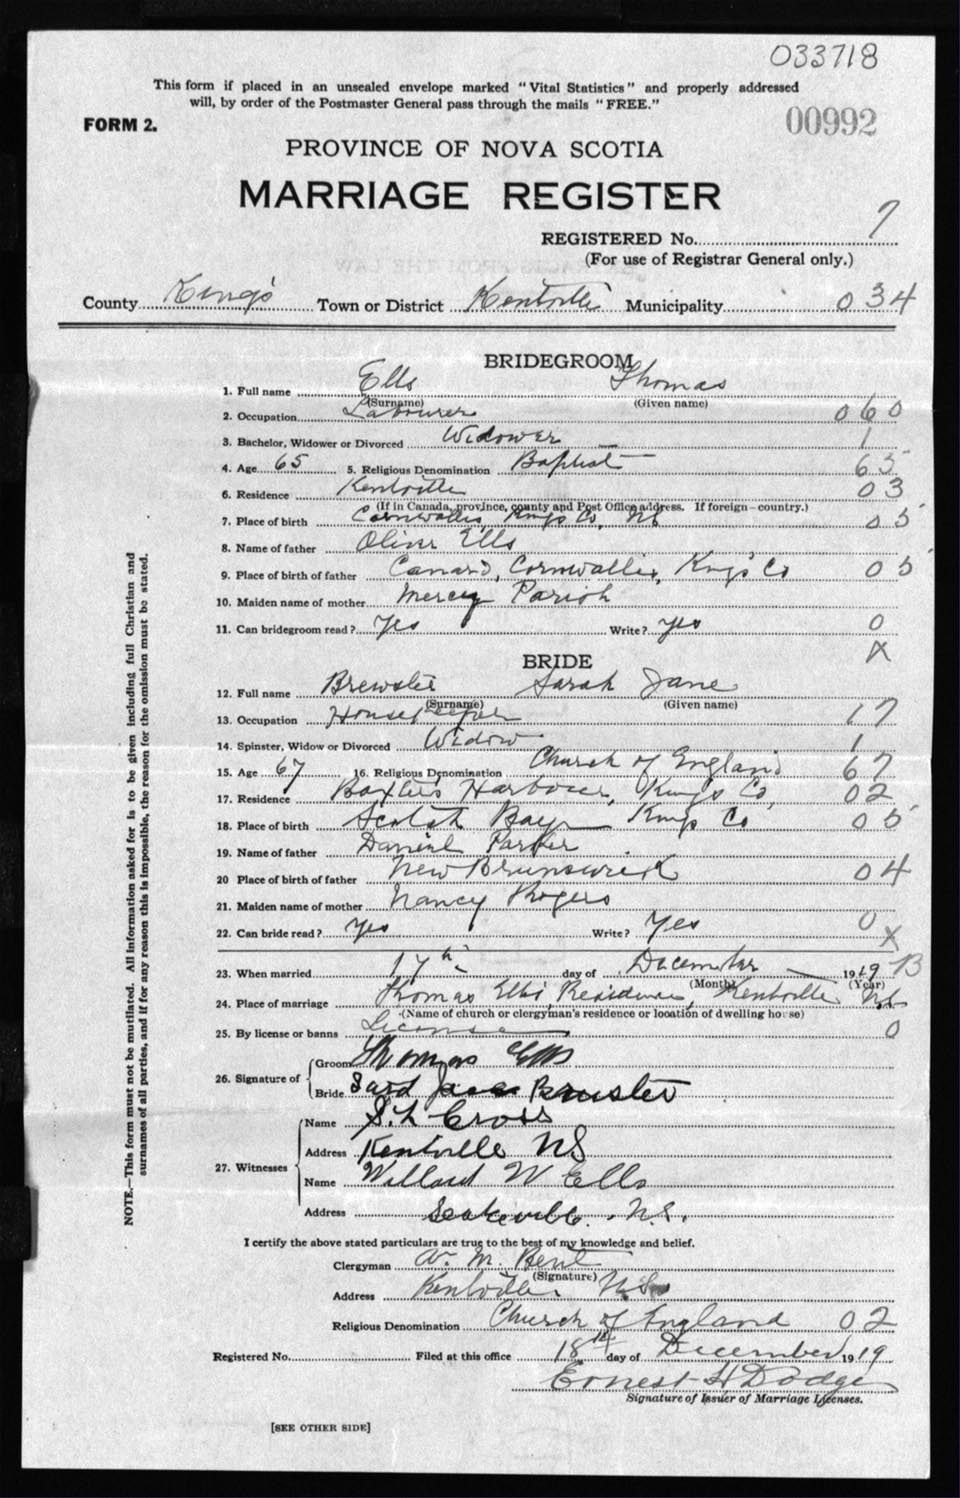 033718
This form if placed in an unsealed envelope marked "Vital Statistics" and properly addressed
will, by order of the Postmaster General pass through the mails "FREE."
FORM 2.
00992
PROVINCE OF NOVA SCOTIA
MARRIAGE REGISTER
REGISTERED No. 7
(For use of Registrar General only.)
County King's Town or District Kentville Municipality 034
BRIDEGROOM
1. Full name Ells Thomas
(Surname) (Given name)
2. Occupation Labourer 060
3. Bachelor, Widower or Divorced Widower 1
4. Age 65 5. Religious Denomination Baptist 65
6. Residence Kentville 03
(If in Canada, province, county and Post Office address. If foreign—country.)
7. Place of birth Cornwallis, Kings Co, NS 05
8. Name of father Oliver Ells
9. Place of birth of father Canard, Cornwallis, Kings Co 05
10. Maiden name of mother Mercy Parish
11. Can bridegroom read? Yes Write? Yes 0
X
BRIDE
12. Full name Brewster Sarah Jane
(Surname) (Given name)
13. Occupation Housekeeper 17
14. Spinster, Widow or Divorced Widow 1
15. Age 67 16. Religious Denomination Church of England 67
17. Residence Baxters Harbour, Kings Co, 02
18. Place of birth Scotch Bay Kings Co 05
19. Name of father Daniel Parker
20 Place of birth of father New Brunswick 04
21. Maiden name of mother Nancy Rogers
22. Can bride read? Yes Write? Yes 0
X
23. When married 17th day of December 1919 B
(Month) (Year)
24. Place of marriage Thomas Ells' Residence, Kentville N.S.
(Name of church or clergyman's residence or location of dwelling house)
25. By license or banns License 0
26. Signature of Groom Thomas Ells
Bride Brewster
27. Witnesses Name S. L. Cross
Address Kentville NS
Name Willard W Ells
Address N.S.
I certify the above stated particulars are true to the best of my knowledge and belief.
Clergyman M. Bent
(Signature)
Address Kentville N.S.
Religious Denomination Church of England 02
Registered No. Filed at this office 18th day of December 1919
Ernest H Dodge
Signature of Issuer of Marriage Licenses.
[SEE OTHER SIDE]
NOTE.—This form must not be mutilated. All information asked for is to be given including full Christian and
surnames of all parties, and if for any reason this is impossible, the reason for the omission must be stated.